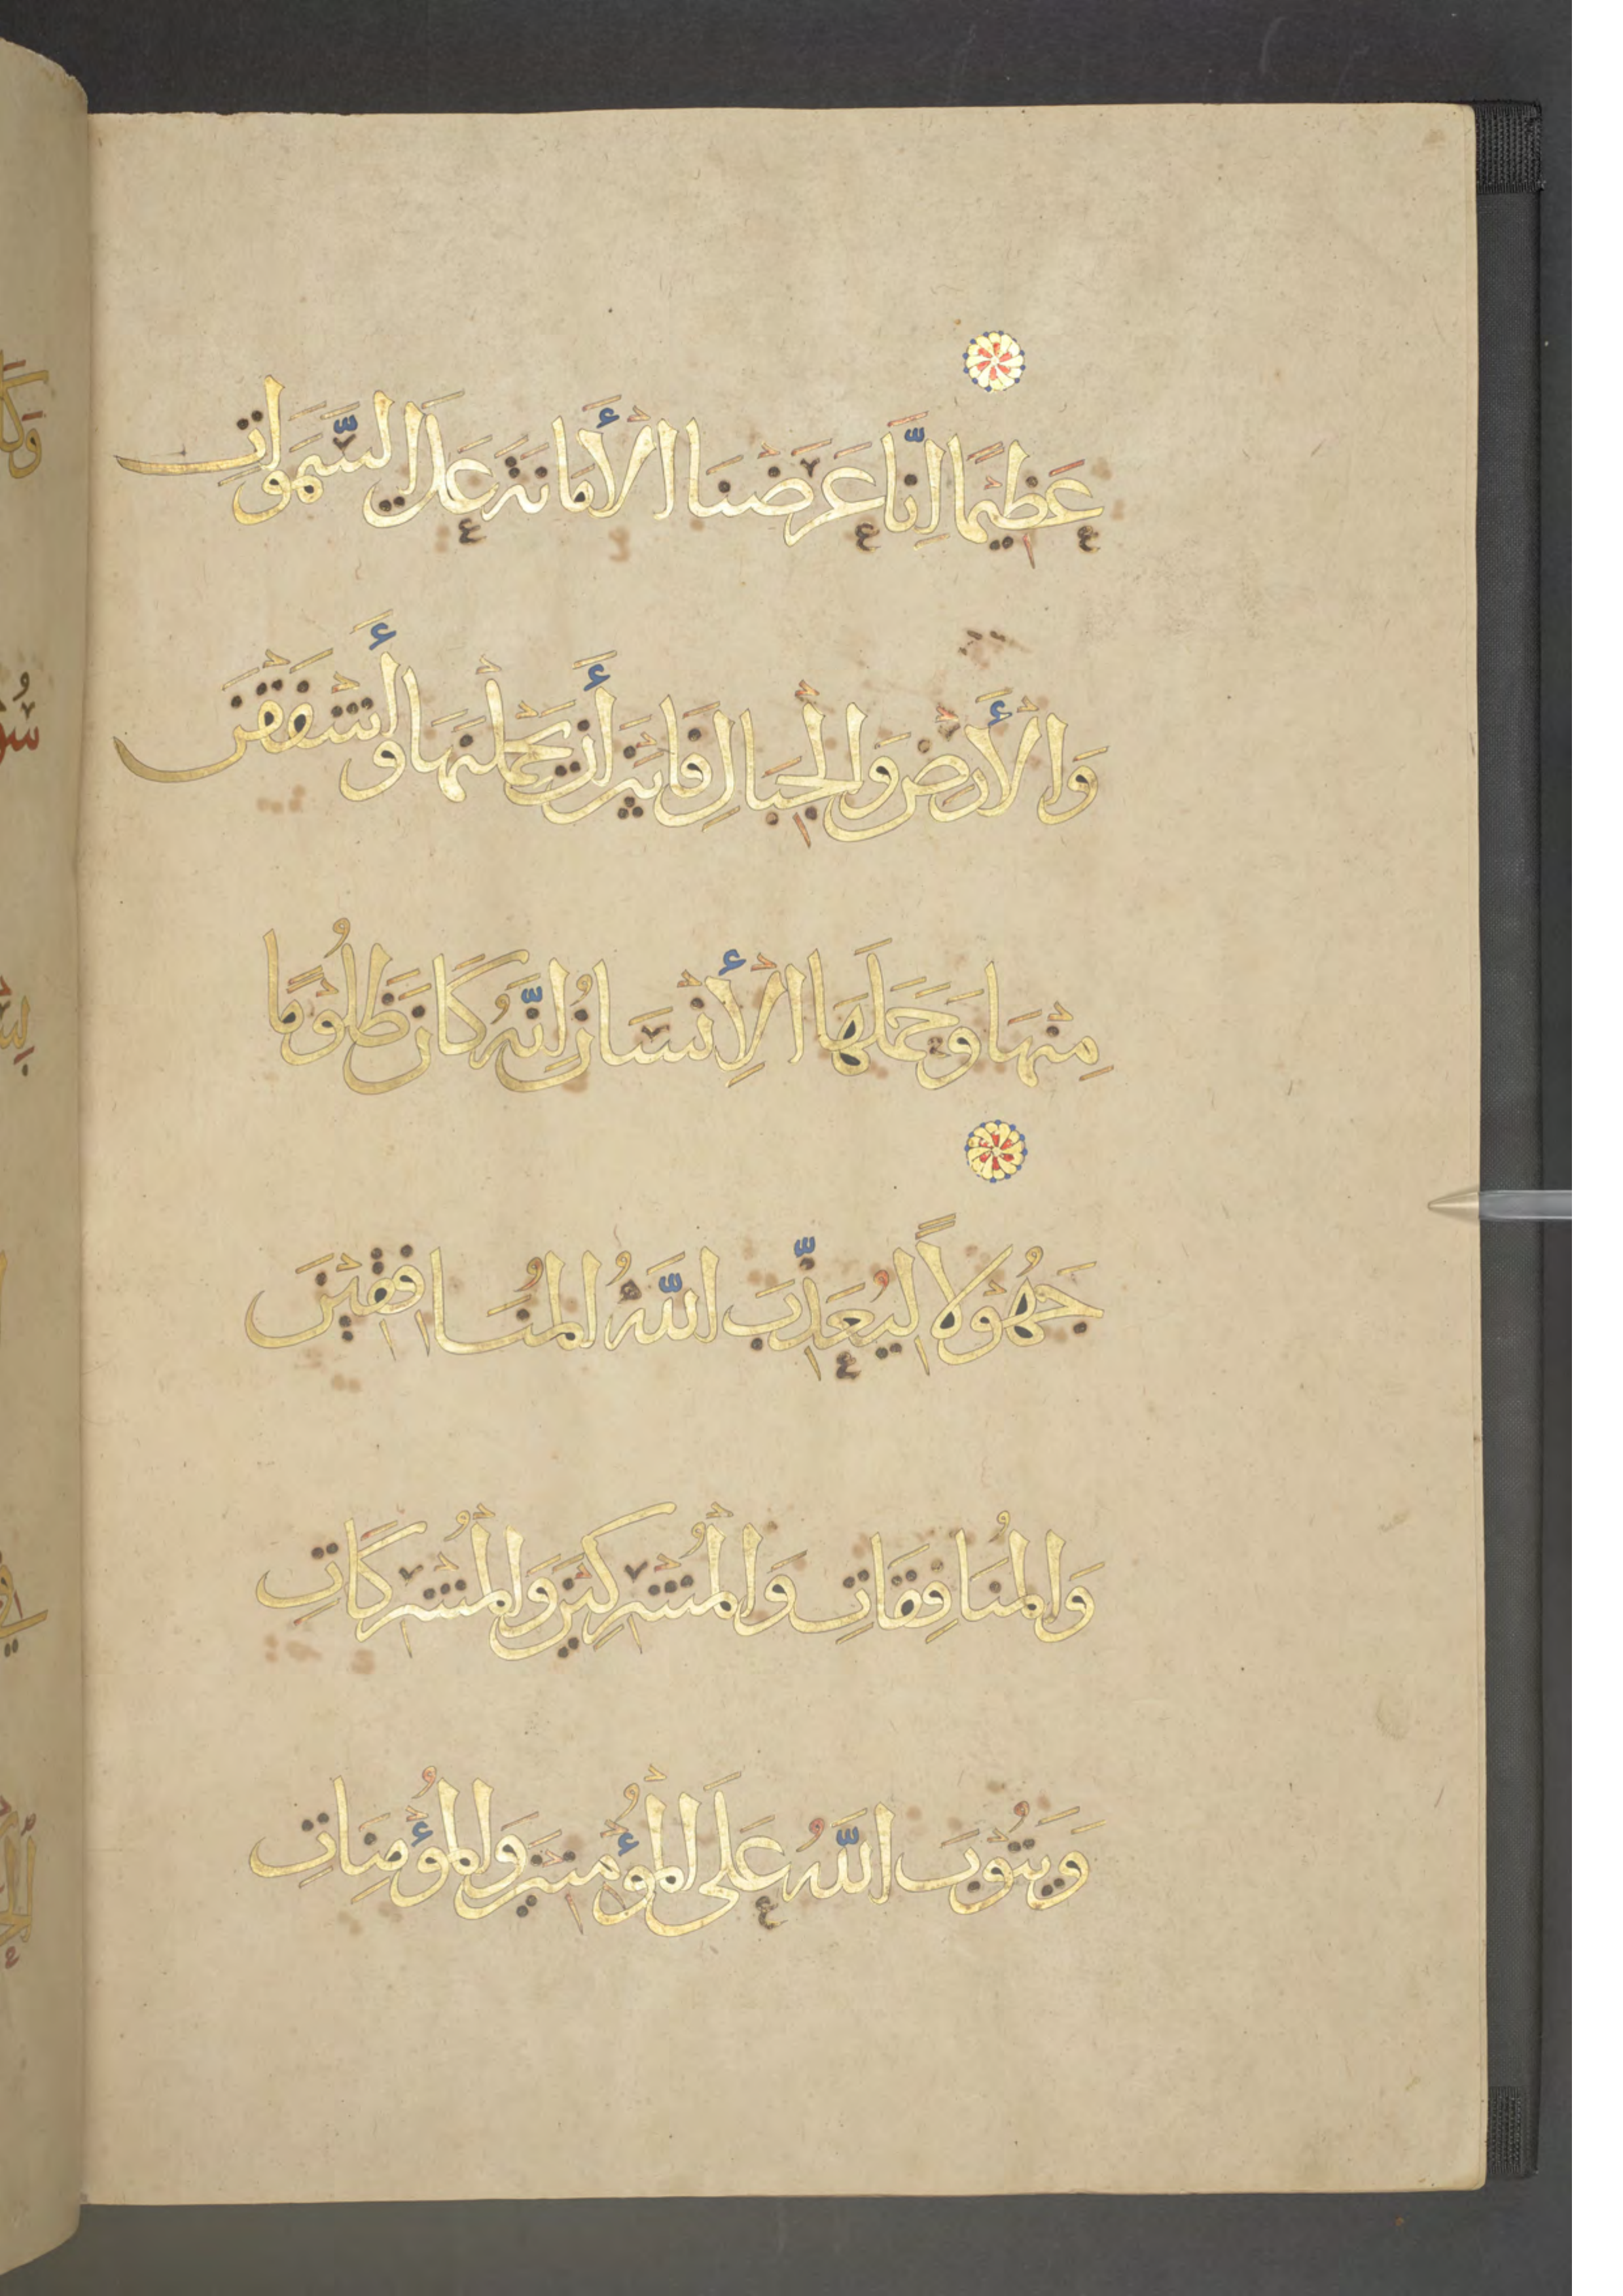 عَظِيمًا إِنَّا عَرَضْنَا الْأَمَانَةَ عَلَى السَّمَوَاتِ
وَالْأَرْضِ وَالْجِبَالِ فَأَبَيْنَ أَنْ يَحْمِلْنَهَا وَأَشْفَقْنَ
مِنْهَا وَحَمَلَهَا الْأِنْسَانُ إِنَّهُ كَانَ ظَلُوْمًا
جَهُوْلًا لِيُعَذِّبَ اللَّهُ الْمُنَافِقِيْنَ
وَالْمُنَافِقَاتِ وَالْمُشْرِكِيْنَ وَالْمُشْرِكَاتِ
وَيَتُوْبَ اللَّهُ عَلَى الْمُؤْمِنِيْنَ وَالْمُؤْمِنَاتِ